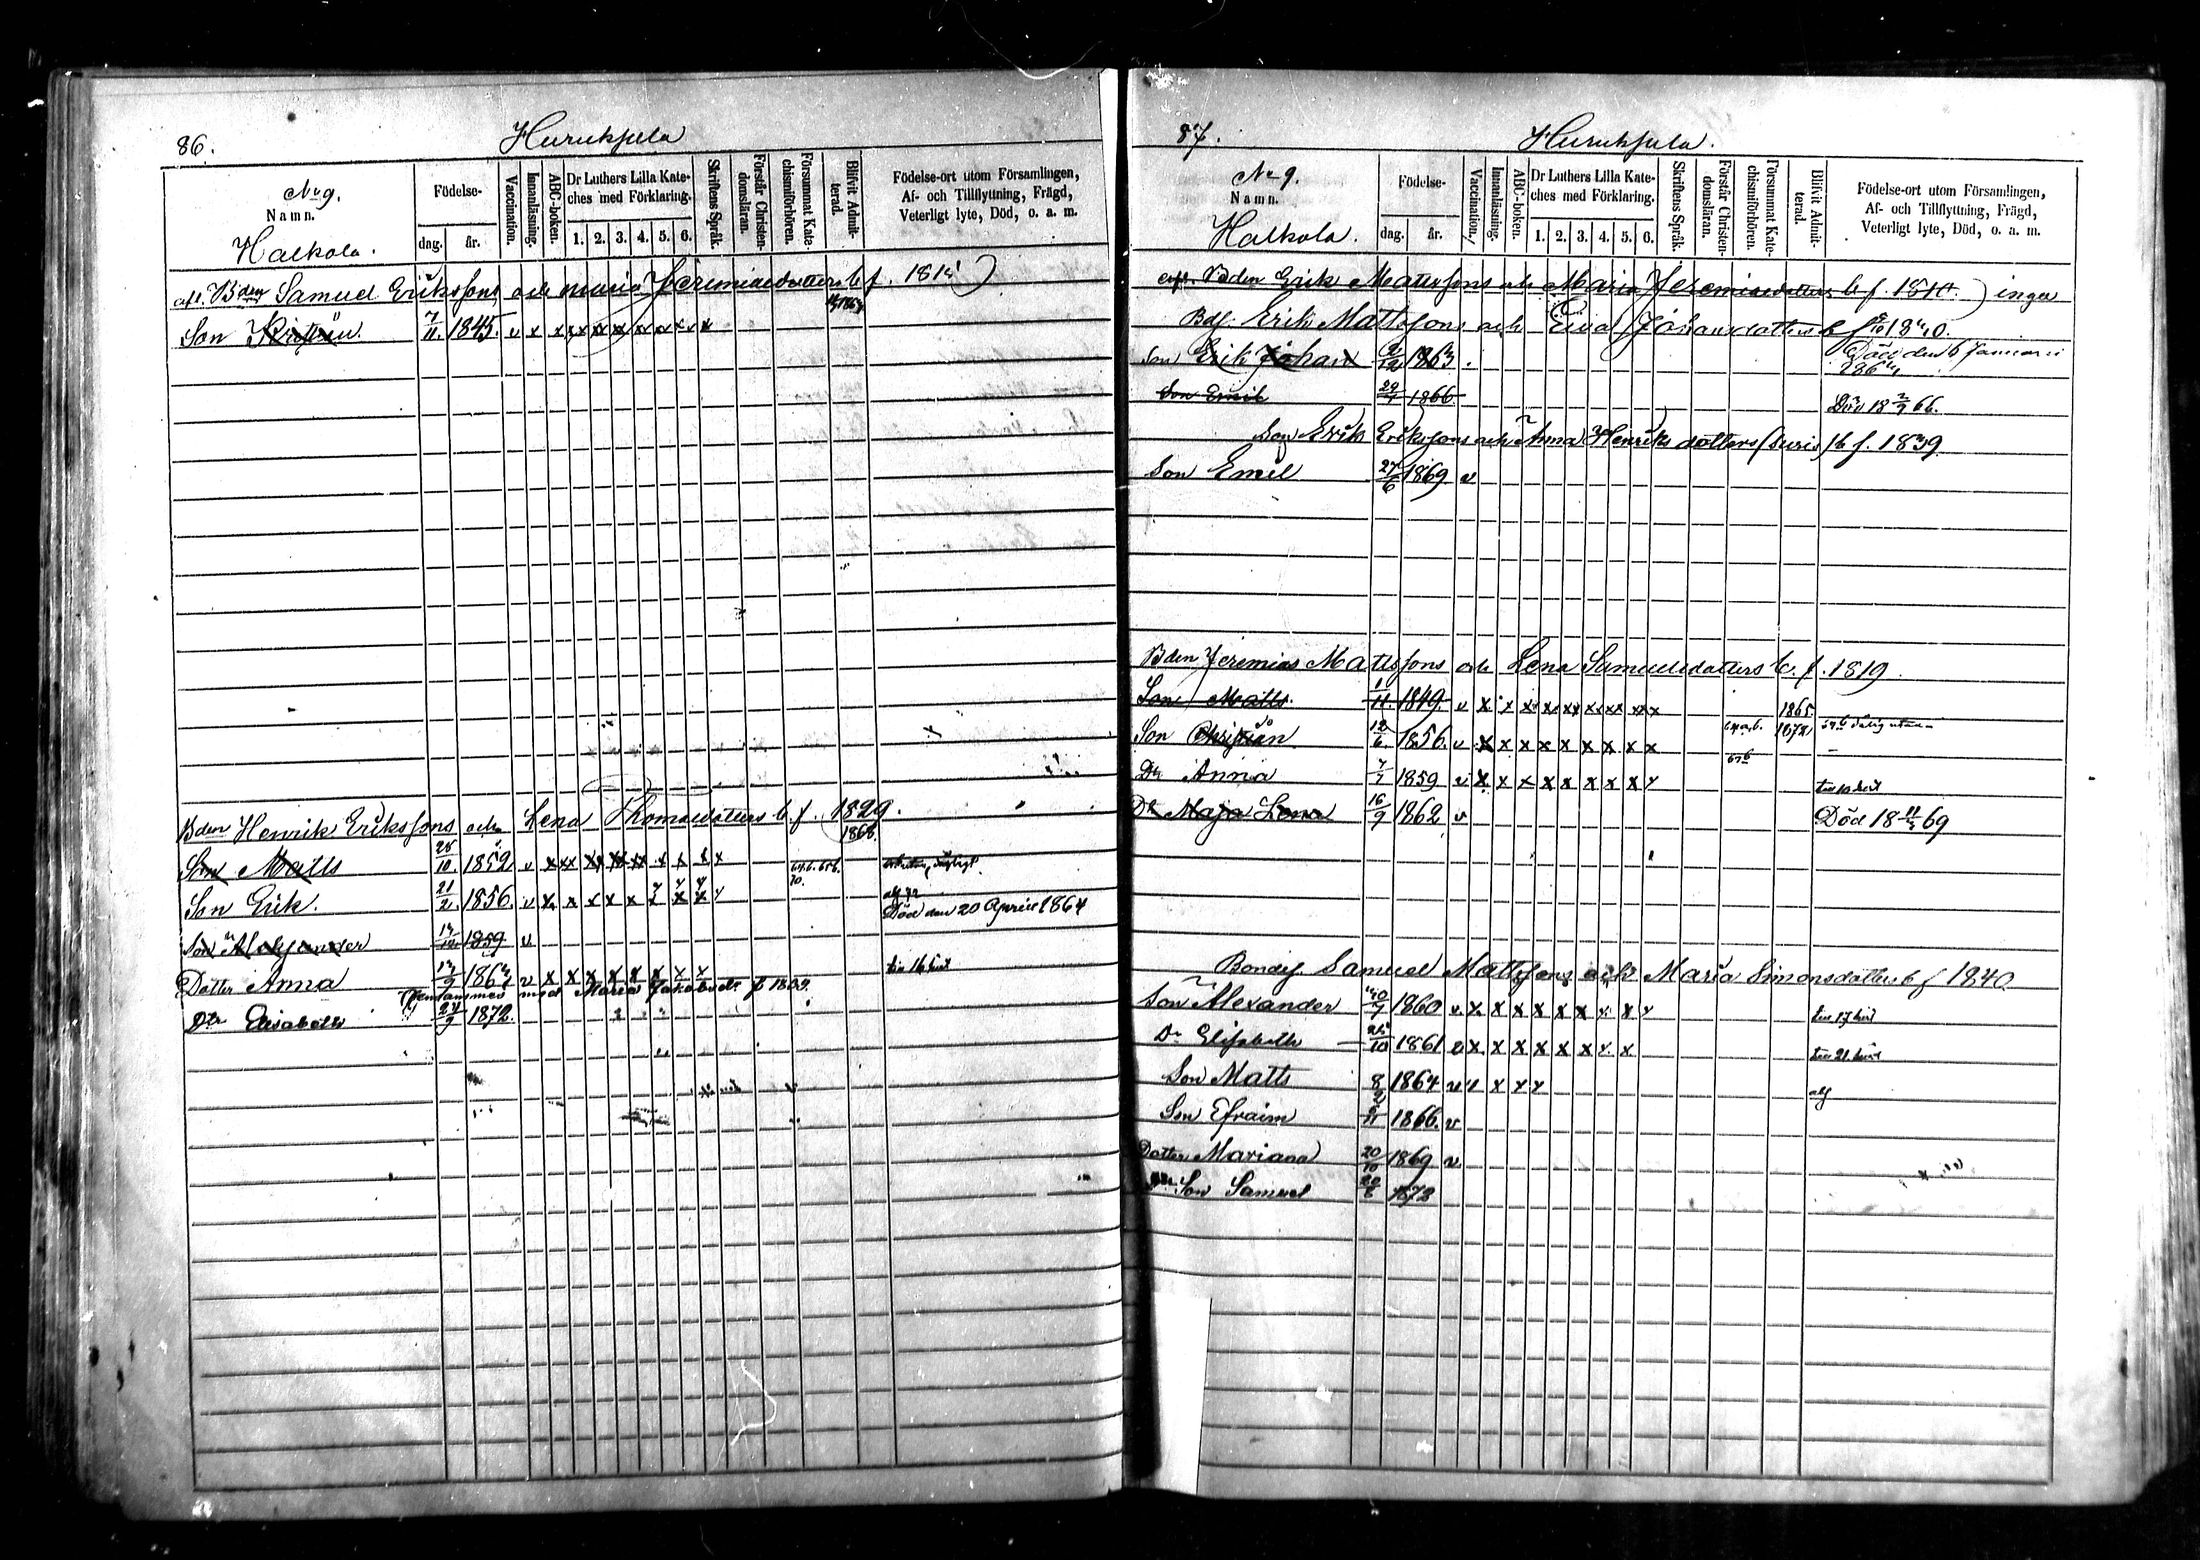 86.
Huruksela
No 9.
Namn.
Halkola.
Födelse-
dag. år.
Vaccination.
Innanläsning.
ABC-boken.
Dr Luthers Lilla Kate-
ches med Förklaring.
1. 2. 3. 4. 5. 6.
Skriftens Språk.
Förstår Christen-
domsläran.
Försummat Kate-
chismiförhören.
Blifvit Admit-
terad.
Födelse-ort utom Församlingen,
Af- och Tillflyttning, Frägd,
Veterligt lyte, Död, o. a. m.
afl. Bden Samuel Erikssons och Maria Jeremiaedotters b f.
Son Kristian 7/11 1845. v x x x x x x x x x x
Bden Henrik Erikssons och Lena Thomaedotters b. f. 1829.
1868.
Son Matts 28/10 1852 v x x x x x x x x x x
Son Erik. 21/2 1856. v x x x x x x x x
Död den 20 April 1864
Son Alexander 1859 v
Dotter Anna v x x x x x x x
Maria Jakobsdr
Dtr Elisabeth 24/9 1872.
87.
Huruksela.
No 9.
Namn.
Halkola.
Födelse-
dag. år.
Vaccination.
Innanläsning.
ABC-boken.
Dr Luthers Lilla Kate-
ches med Förklaring.
1. 2. 3. 4. 5. 6.
Skriftens Språk.
Förstår Christen-
domsläran.
Försummat Kate-
chismiförhören.
Blifvit Admit-
terad.
Födelse-ort utom Församlingen,
Af- och Tillflyttning, Frägd,
Veterligt lyte, Död, o. a. m.
afl. Bden Erik Mattssons och Maria Jeremiaedotters b. f. 1810. ) inga
Bdf. Erik Mattssons och Eva Johansdotters b f 1840.
Död den 6 Januari
Son Erik Johan 2/12 1863.
Son Emil 1866. Död 18 2/9 66.
Son Erik Erikssons och Anna Henriksdotters b. f. 1839
Son Emil 27/6 1869 v
Bden Jeremias Mattssons och Lena Samuelsdotters b. f. 1819
Son Matts. 1/11 1849 v x x x x x x x x x 1865
Son Christian 12/6 1856. v x x x x x x x x x 1872
Dr Anna 7/7 1859 v x x x x x x x x
Dr Maja Lena 16/9 1862 v Död 18 11/3 69
Bondes. Samuel Mattssons och Maria Simonsdotters b f 1840.
Son Alexander 1860 v x x x x x x x x
Dr Elisabeth 1861 v x x x x x x x x
Son Matts 8/2 1864 v x x x
Son Efraim 1866. v
Dotter Mariana 20/10 1869 v
Son Samuel 1872